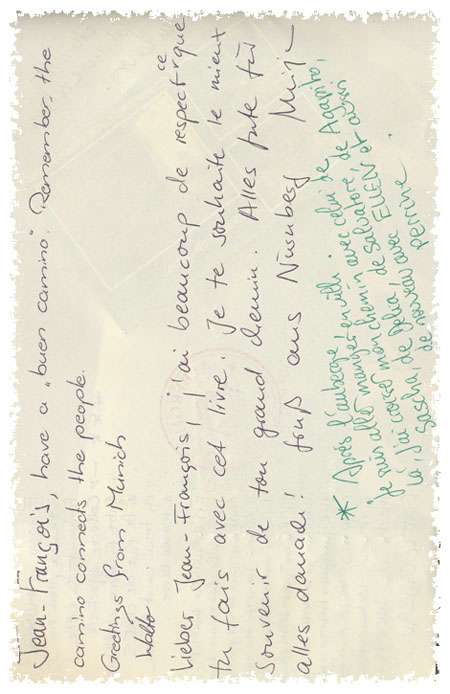 Jean-François, have a „buen camino". Remember, the
camino connects the people.
Greetings from Munich
Walter
Lieber Jean-François, j'ai beaucoup de respect ce que
tu fais avec cet livre. Je te souhaite le mient
Souvenir de ton grand chemin. Alles gute für
alles danach! Gruß aus Nürnberg
* Après l'auberge,
je suis allé manger en ville.
là, j'ai croisé mon chemin avec celui de Agapito,
Sascha, de Délia, de Salvatore, de
de nouveau avec ELLEN et aussi
perrine